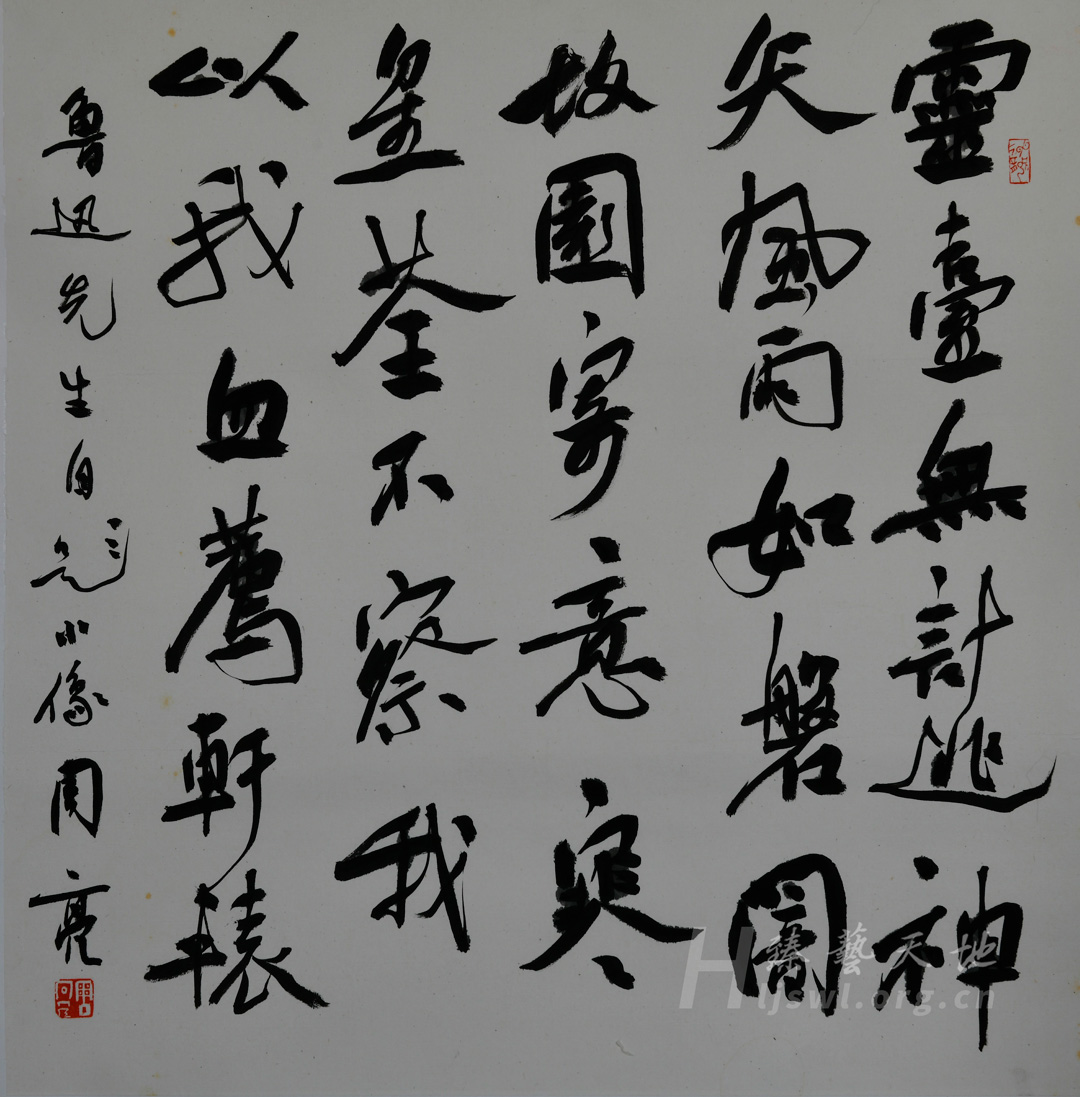 靈臺無計逃神
矢風雨如磐闇
故園寄意寒
星荃不察我
以我血薦軒轅
魯迅先生自題小像周亮
臻藝天地
Hljswl.org.cn